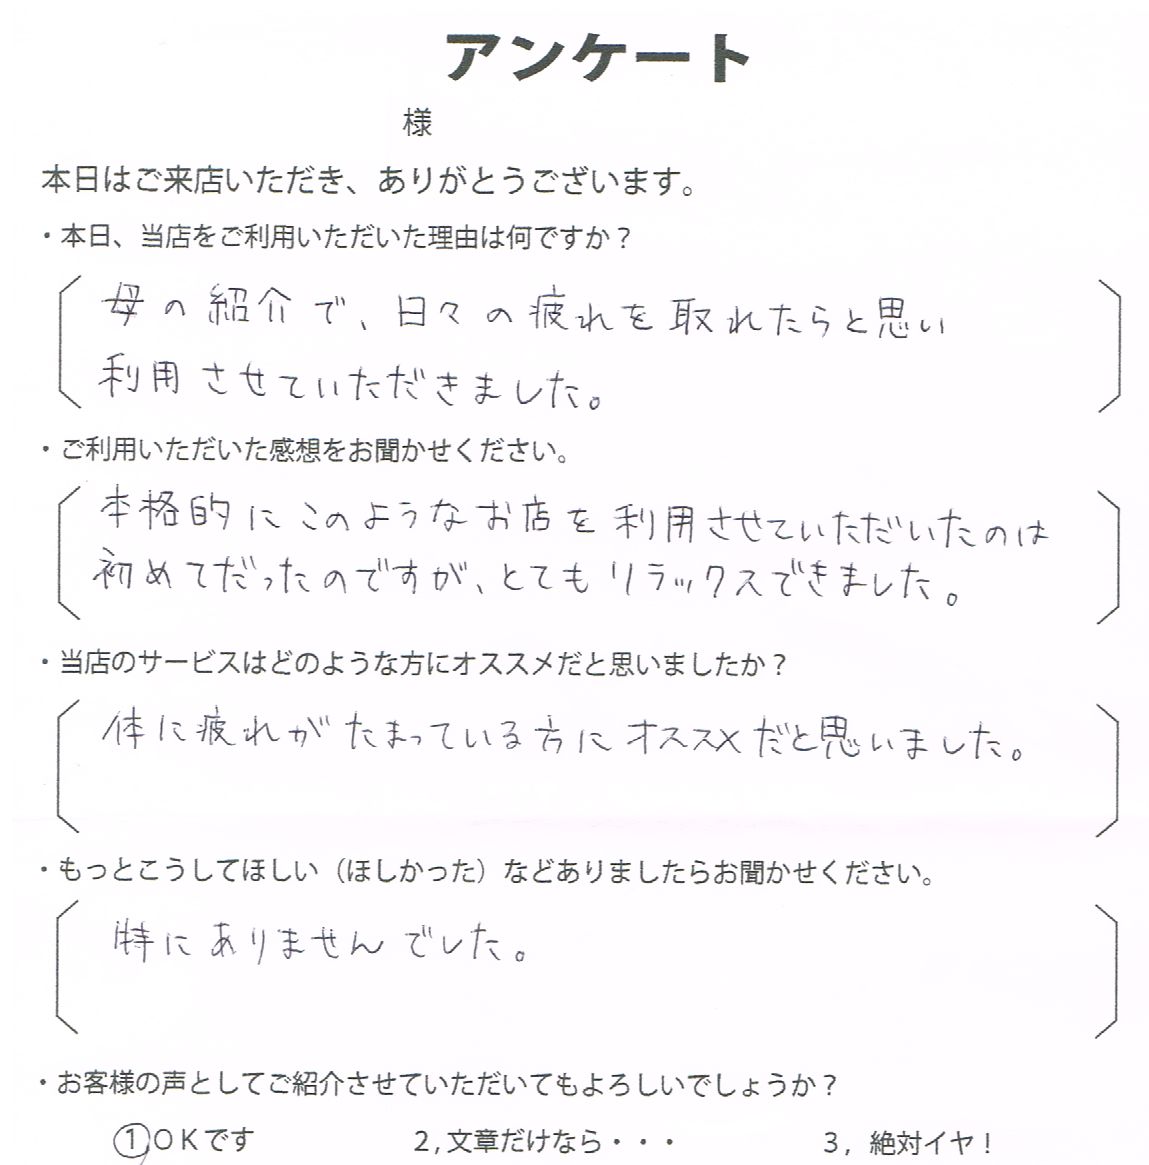 アンケート
様
本日はご来店いただき、ありがとうございます。
・本日、当店をご利用いただいた理由は何ですか？
母の紹介で、日々の疲れを取れたらと思い
利用させていただきました。
・ご利用いただいた感想をお聞かせください。
本格的にこのようなお店を利用させていただいたのは
初めてだったのですが、とてもリラックスできました。
・当店のサービスはどのような方にオススメだと思いましたか？
体に疲れがたまっている方にオススメだと思いました。
・もっとこうしてほしい（ほしかった）などありましたらお聞かせください。
特にありませんでした。
・お客様の声としてご紹介させていただいてもよろしいでしょうか？
①ＯＫです　2,文章だけなら・・・　3，絶対イヤ！